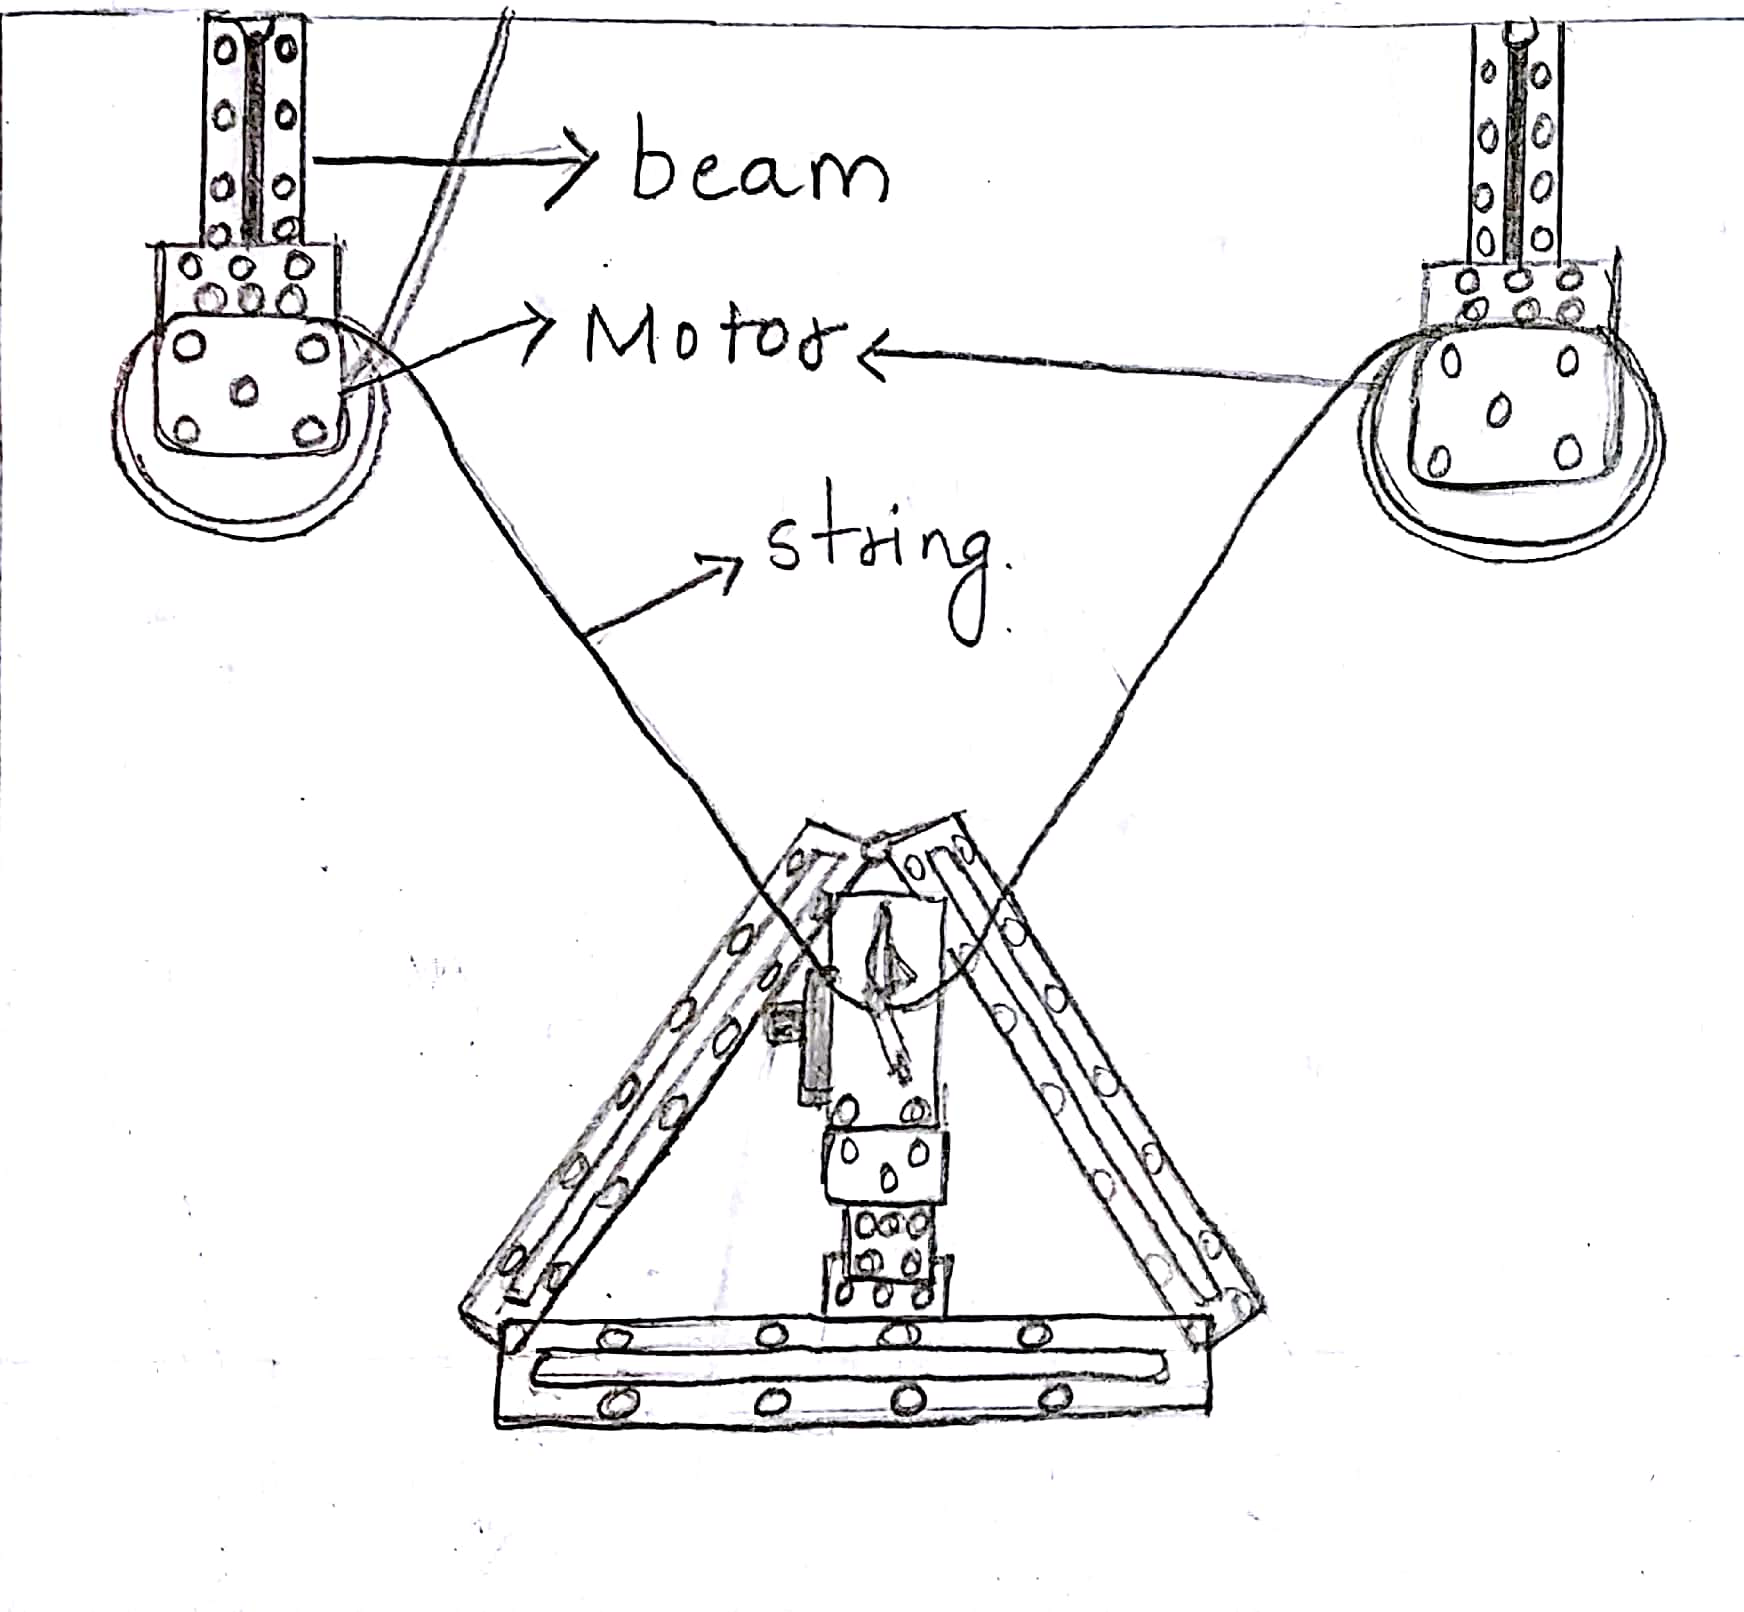 beam
Motor
string.